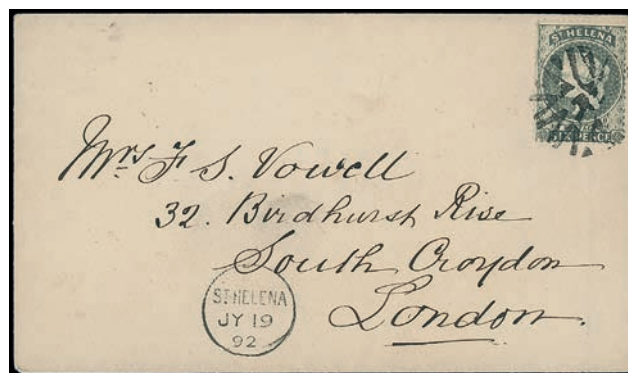 ST HELENA
SIX PENCE
Mrs F S. Vowell
32. Birdhurst Rise
South Croydon
London.
ST HELENA
JY 19
92